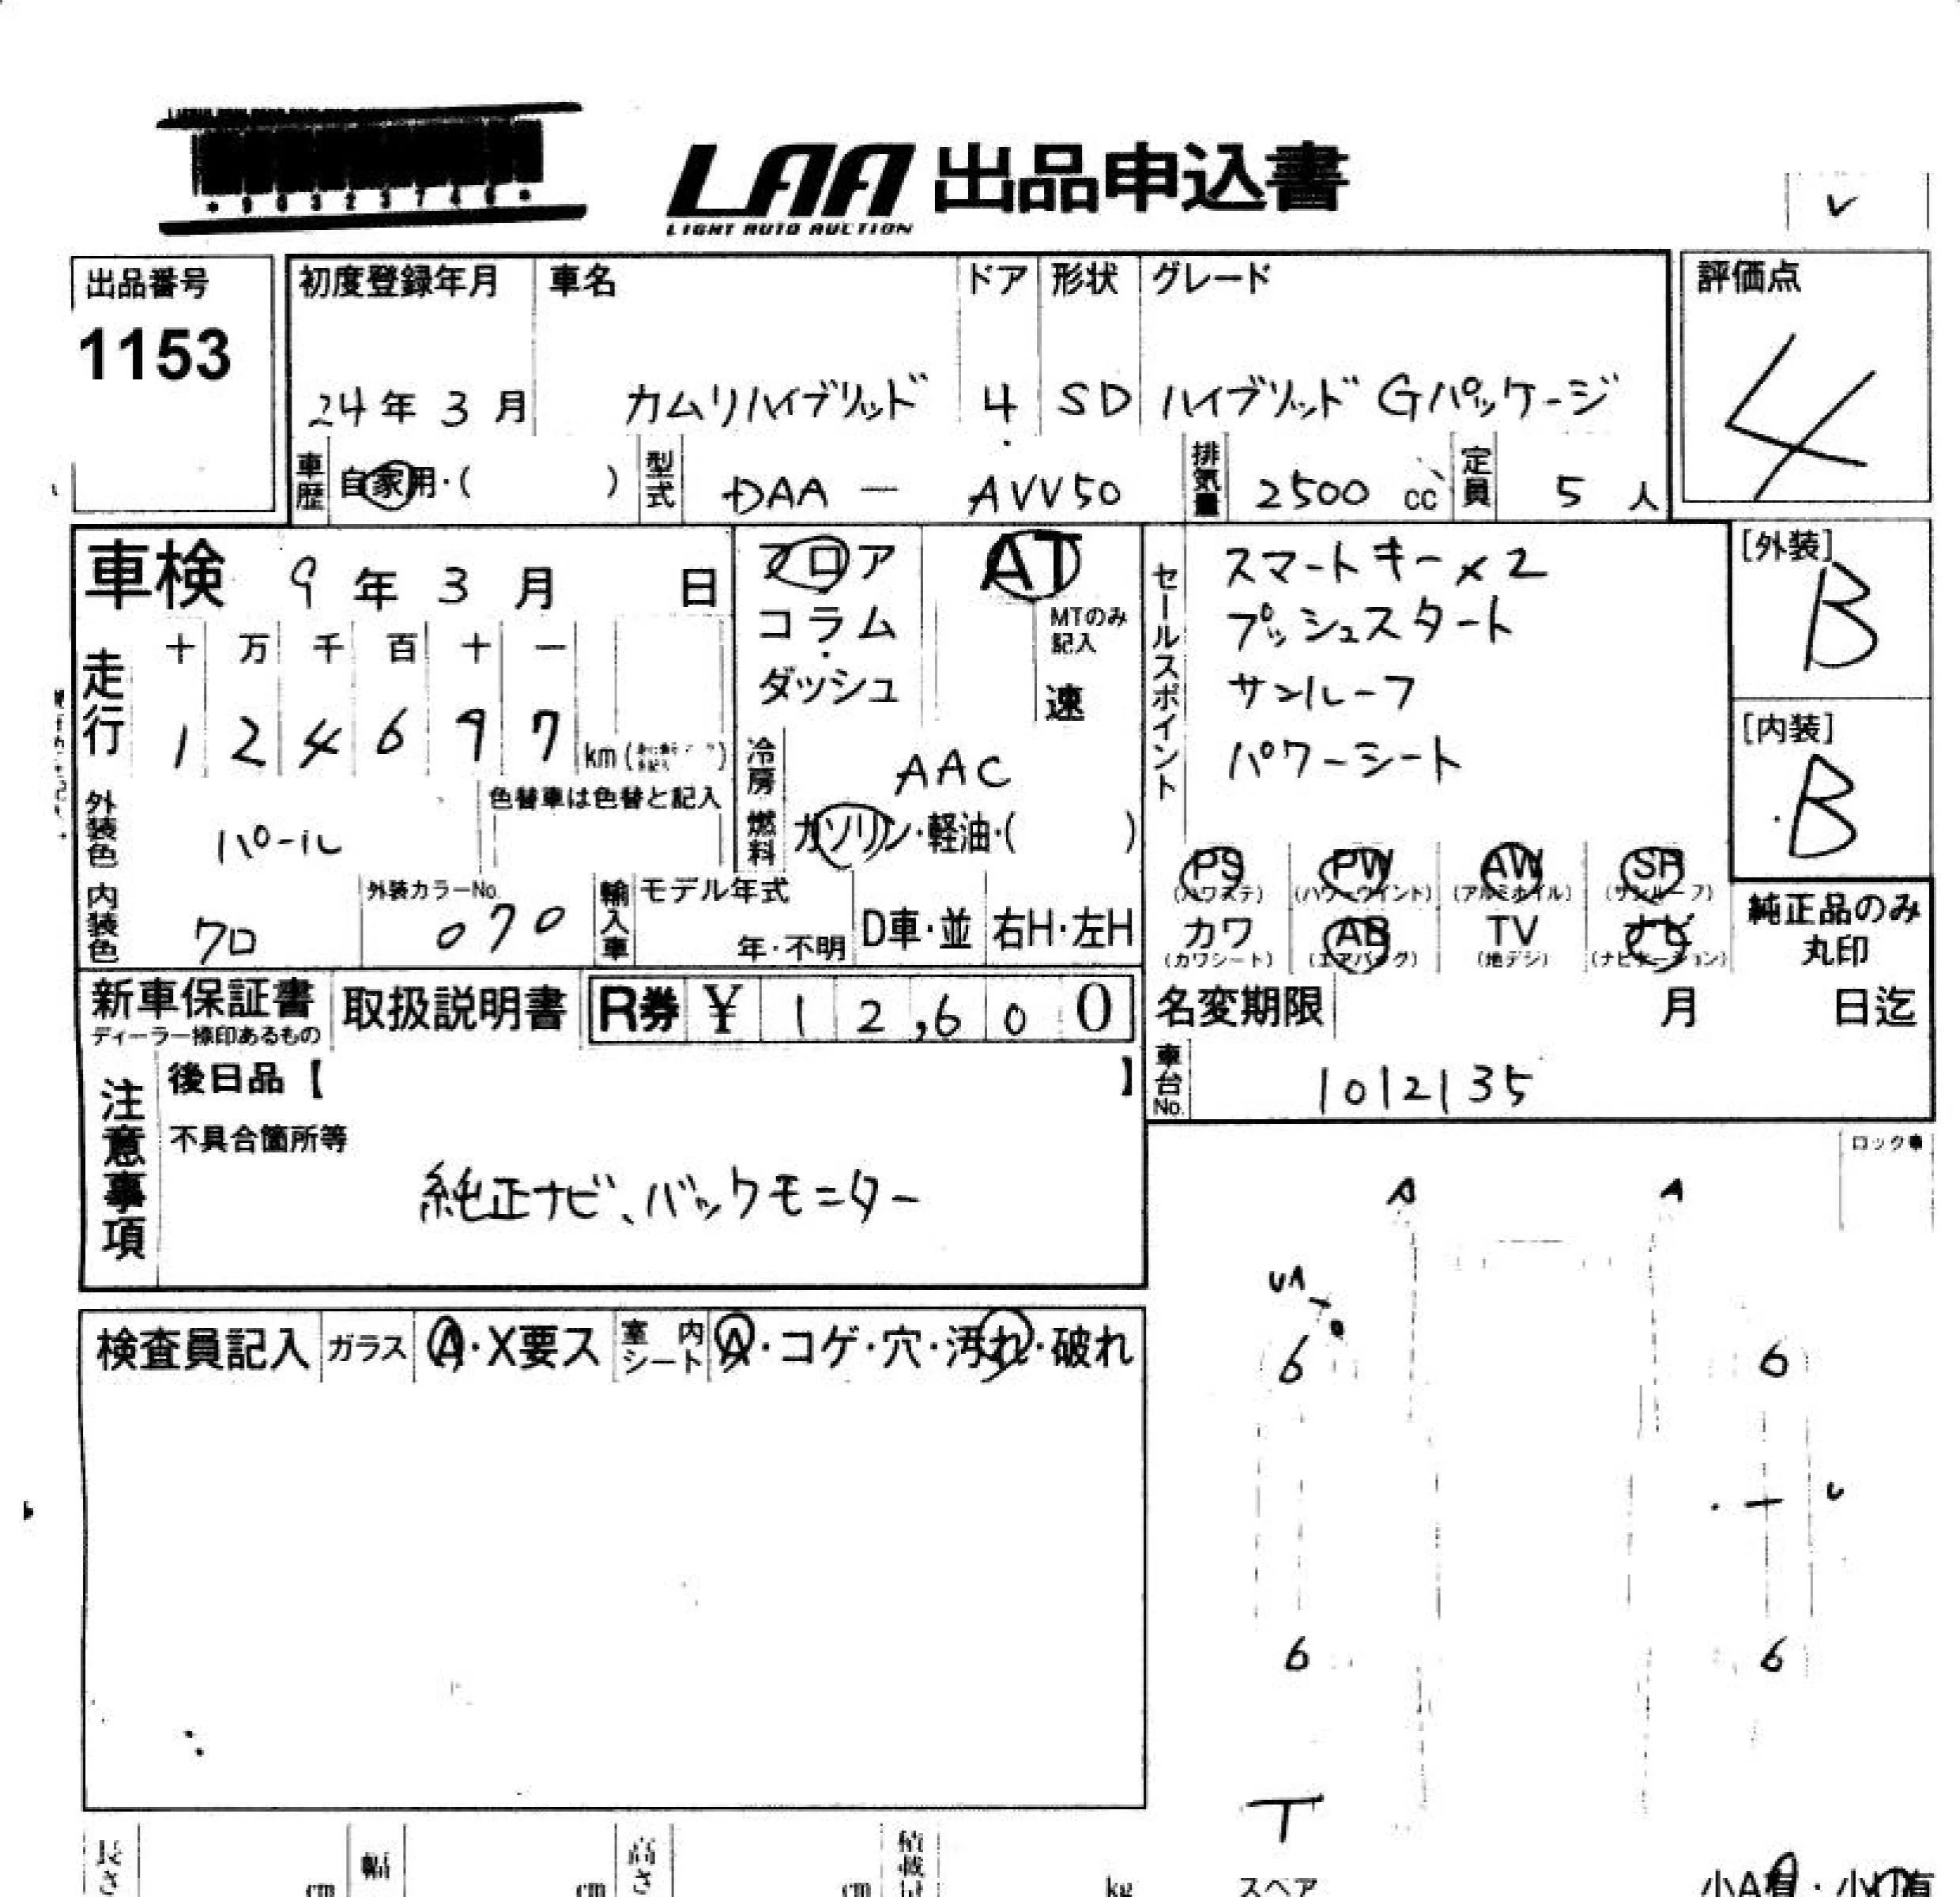 LAA 出品申込書
LIGHT AUTO AUCTION
出品番号 初度登録年月 車名 ドア 形状 グレード 評価点
1153
24年 3月 カムリハイブリッド 4 SD ハイブリッド Gパッケージ 4
車歴 自家用・( ) 型式 DAA — AVV50 排気量 2500 cc 定員 5 人
車検 9年 3月 日
フロア AT
コラム MTのみ記入
ダッシュ 速
セールスポイント スマートキー×2
プッシュスタート
サンルーフ
パワーシート
[外装] B
[内装] B
走行 十 万 千 百 十 一
1 2 4 6 9 7 km
冷房 AAC
外装色 パール 色替車は色替と記入
燃料 ガソリン・軽油・( )
PS PW AW SR
(パワステ) (パワーウインド) (アルミホイル) (サンルーフ)
カワ AB TV ナビ
(カワシート) (エアバック) (地デジ) (ナビゲーション)
純正品のみ
丸印
内装色 クロ 外装カラーNo. 070 輸入車 モデル年式 年・不明 D車・並 右H・左H
新車保証書 取扱説明書 R券 ¥ 1 2,6 0 0
ディーラー捺印あるもの
名変期限 月 日迄
車台No. 1012135
注意事項 後日品【 】
不具合箇所等
純正ナビ、バックモニター
検査員記入 ガラス A・X要ス 室内シート A・コゲ・穴・汚れ・破れ
A A
UA
6 6
U
6 6
T
長さ cm 幅 cm 高さ cm kg
スペア